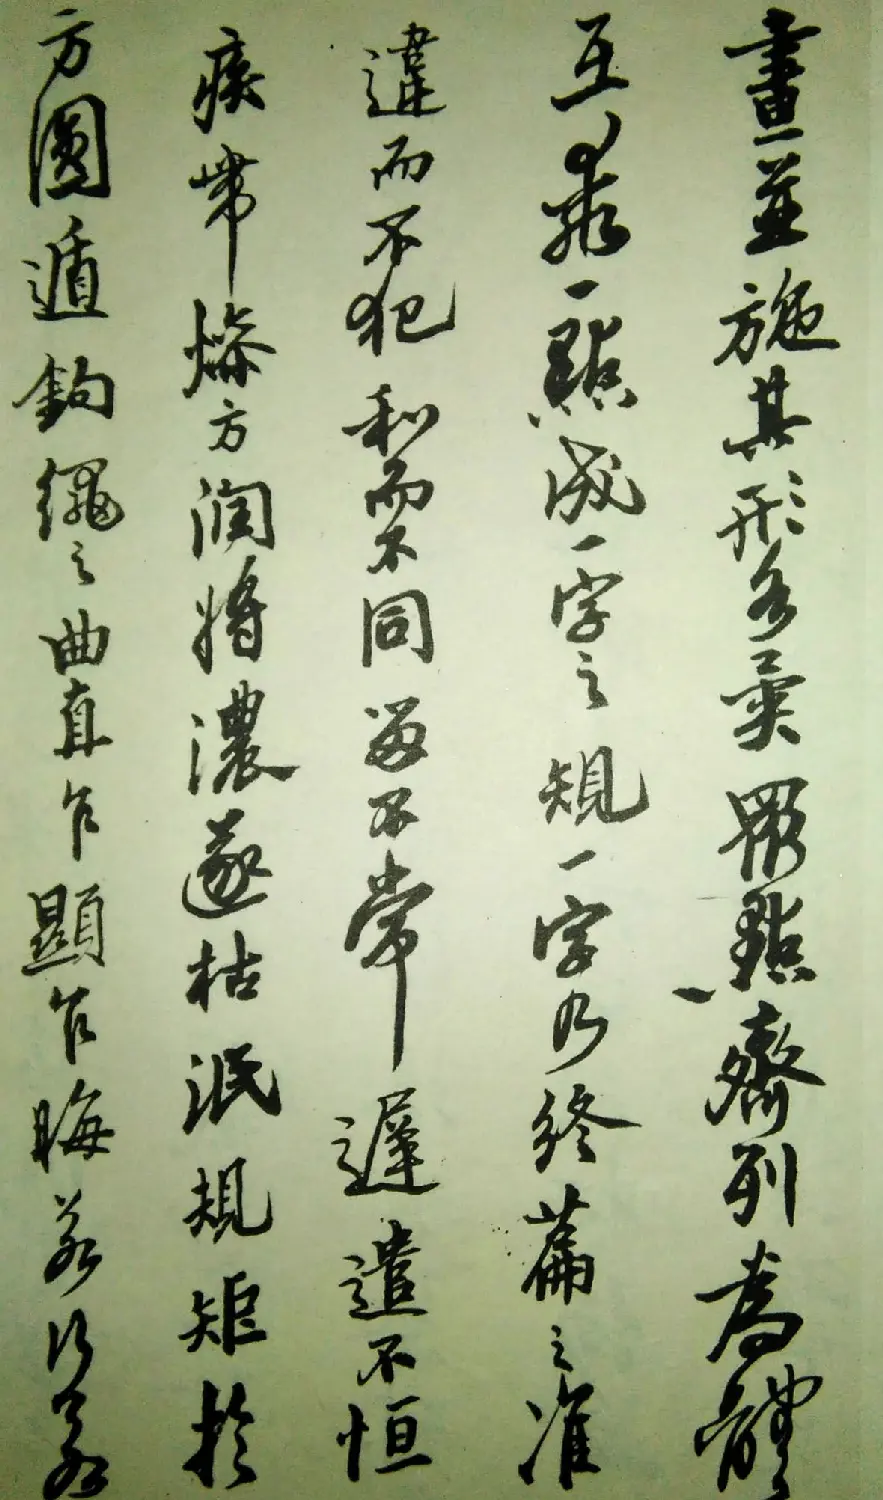 畫並施其形各異眾點齊列為體
互乖一點成一字之規一字乃終篇之准
違而不犯和而不同留不常遲遣不恒
疾帶燥方潤将濃遂枯泯規矩於
方圓遁鉤繩之曲直乍顯乍晦若行若